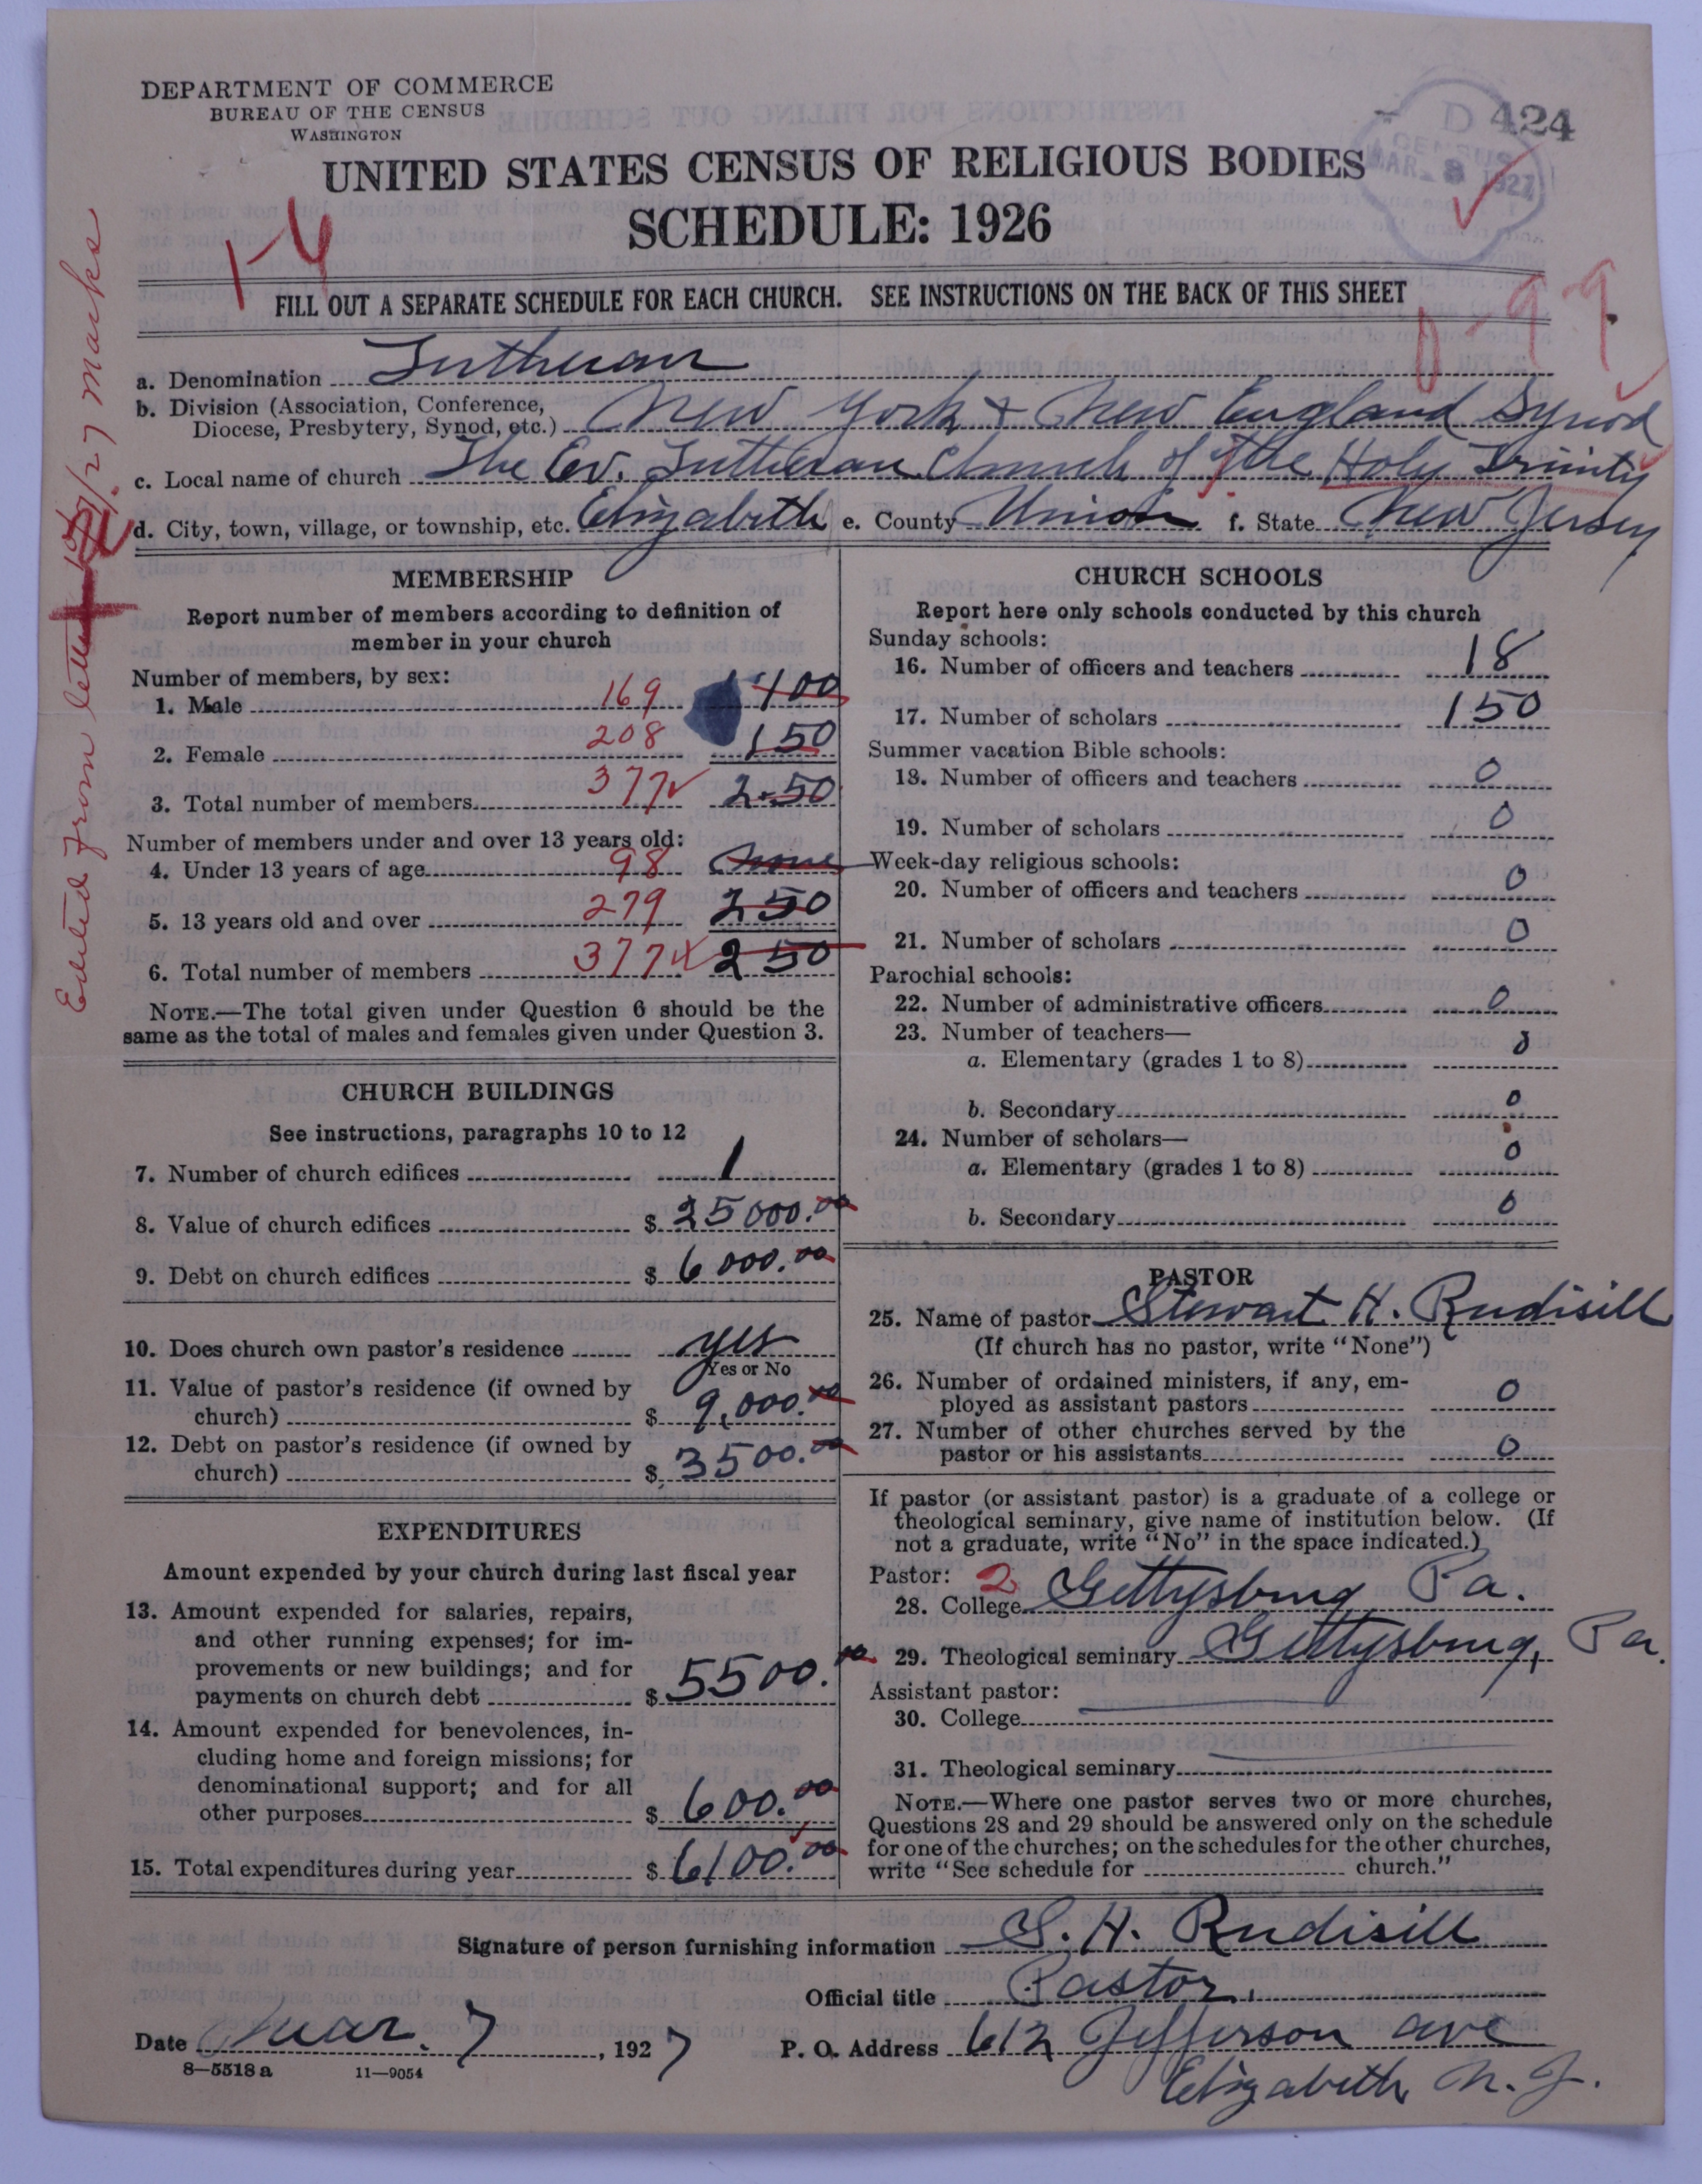 DEPARTMENT OF COMMERCE
BUREAU OF THE CENSUS
WASHINGTON
D 424
CENSUS
MAR 8 1927
UNITED STATES CENSUS OF RELIGIOUS BODIES
SCHEDULE: 1926
1-4
FILL OUT A SEPARATE SCHEDULE FOR EACH CHURCH. SEE INSTRUCTIONS ON THE BACK OF THIS SHEET
0-99
a. Denomination Lutheran
b. Division (Association, Conference,
Diocese, Presbytery, Synod, etc.) New York + New England Synod
c. Local name of church The Ev. Lutheran Church of The Holy Trinity
d. City, town, village, or township, etc. Elizabeth e. County Union f. State New Jersey
Edited from letter 27 Marks
MEMBERSHIP
Report number of members according to definition of
member in your church
Number of members, by sex:
1. Male 169 100
2. Female 208 150
3. Total number of members 377 250
Number of members under and over 13 years old:
4. Under 13 years of age 98 None
5. 13 years old and over 279 250
6. Total number of members 377 250
NOTE.—The total given under Question 6 should be the
same as the total of males and females given under Question 3.
CHURCH BUILDINGS
See instructions, paragraphs 10 to 12
7. Number of church edifices 1
8. Value of church edifices $ 25000.00
9. Debt on church edifices $ 6000.00
10. Does church own pastor's residence yes
Yes or No
11. Value of pastor's residence (if owned by
church) $ 9,000.00
12. Debt on pastor's residence (if owned by
church) $ 3500.00
EXPENDITURES
Amount expended by your church during last fiscal year
13. Amount expended for salaries, repairs,
and other running expenses; for im-
provements or new buildings; and for
payments on church debt $ 5500.00
14. Amount expended for benevolences, in-
cluding home and foreign missions; for
denominational support; and for all
other purposes $ 600.00
15. Total expenditures during year $ 6100.00
CHURCH SCHOOLS
Report here only schools conducted by this church
Sunday schools:
16. Number of officers and teachers 18
17. Number of scholars 150
Summer vacation Bible schools:
18. Number of officers and teachers 0
19. Number of scholars 0
Week-day religious schools:
20. Number of officers and teachers 0
21. Number of scholars 0
Parochial schools:
22. Number of administrative officers 0
23. Number of teachers—
a. Elementary (grades 1 to 8) 0
b. Secondary 0
24. Number of scholars—
a. Elementary (grades 1 to 8) 0
b. Secondary 0
PASTOR
25. Name of pastor Stewart H. Rudisill
(If church has no pastor, write "None")
26. Number of ordained ministers, if any, em-
ployed as assistant pastors 0
27. Number of other churches served by the
pastor or his assistants 0
If pastor (or assistant pastor) is a graduate of a college or
theological seminary, give name of institution below. (If
not a graduate, write "No" in the space indicated.)
Pastor: 2
28. College Gettysburg Pa.
29. Theological seminary Gettysburg, Pa.
Assistant pastor:
30. College
31. Theological seminary
NOTE.—Where one pastor serves two or more churches,
Questions 28 and 29 should be answered only on the schedule
for one of the churches; on the schedules for the other churches,
write "See schedule for church."
Signature of person furnishing information S. H. Rudisill
Official title Pastor
Date Mar. 7, 1927 P. O. Address 612 Jefferson ave
Elizabeth N. J.
8—5518 a 11—9054